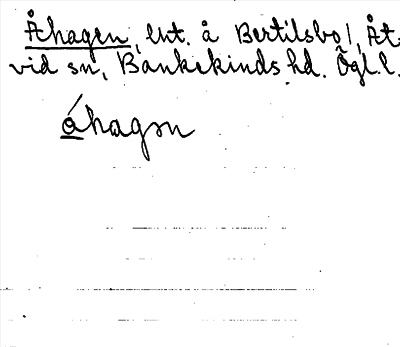 Åhagen, lnt. å Bertilsbo/, Åt-
vid sn, Bankekinds hd. Ögl.l.
áhagən